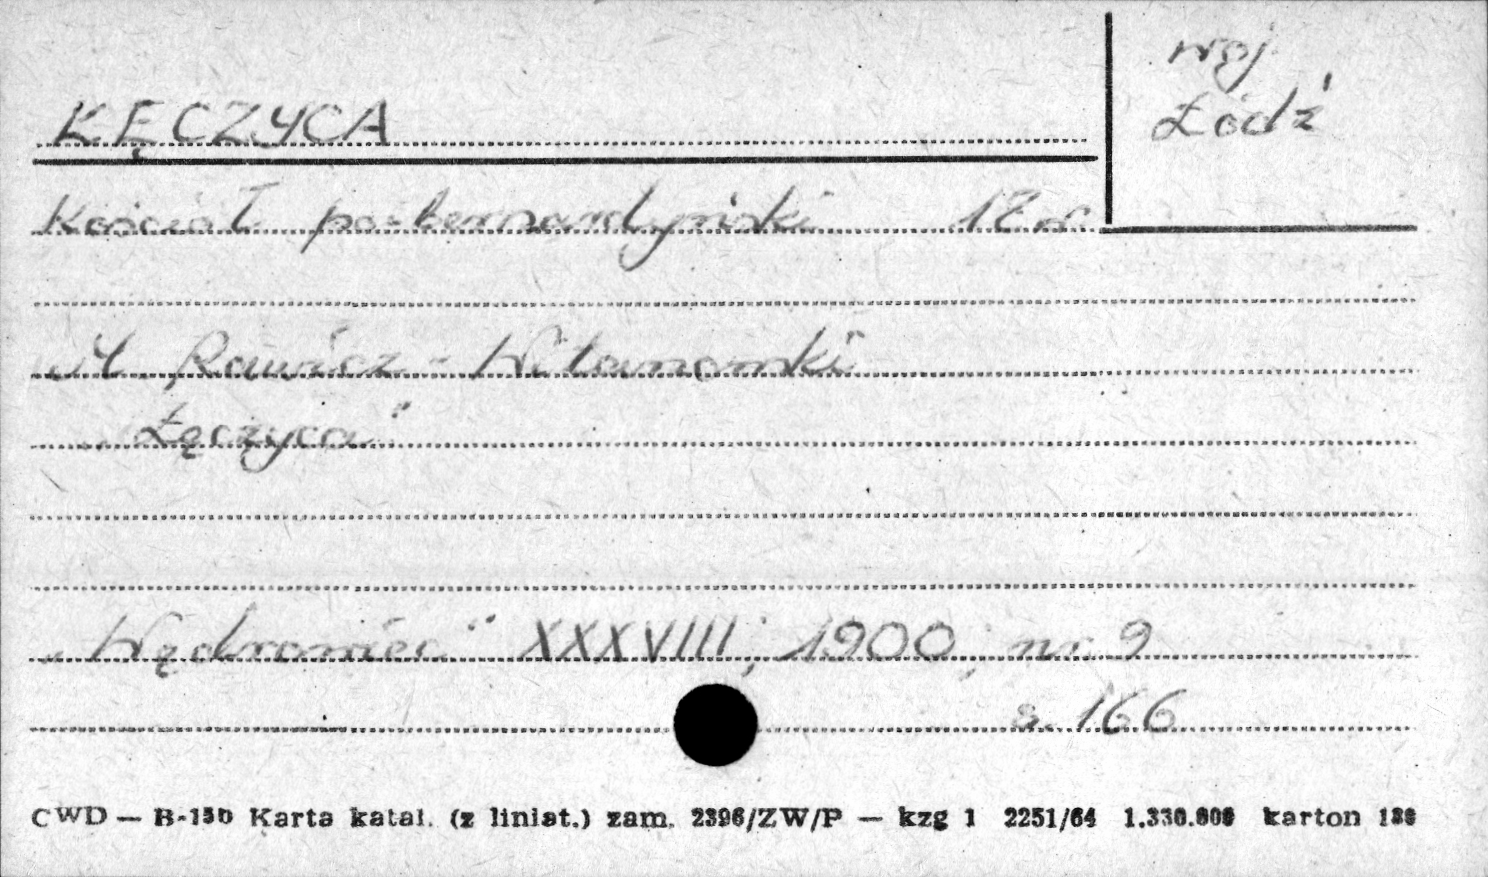 woj
Łódź
ŁĘCZYCA
Kościół po-bernardyński 17 w.
M. Rawicz-Witanowski
"Łęczyca"
"Wędrowiec" XXXVIII, 1900, nr 9
s. 166
CWD — B-150 Karta katal. (z liniat.) zam. 2396/ZW/P — kzg 1 2251/64 1.330.000 karton 180